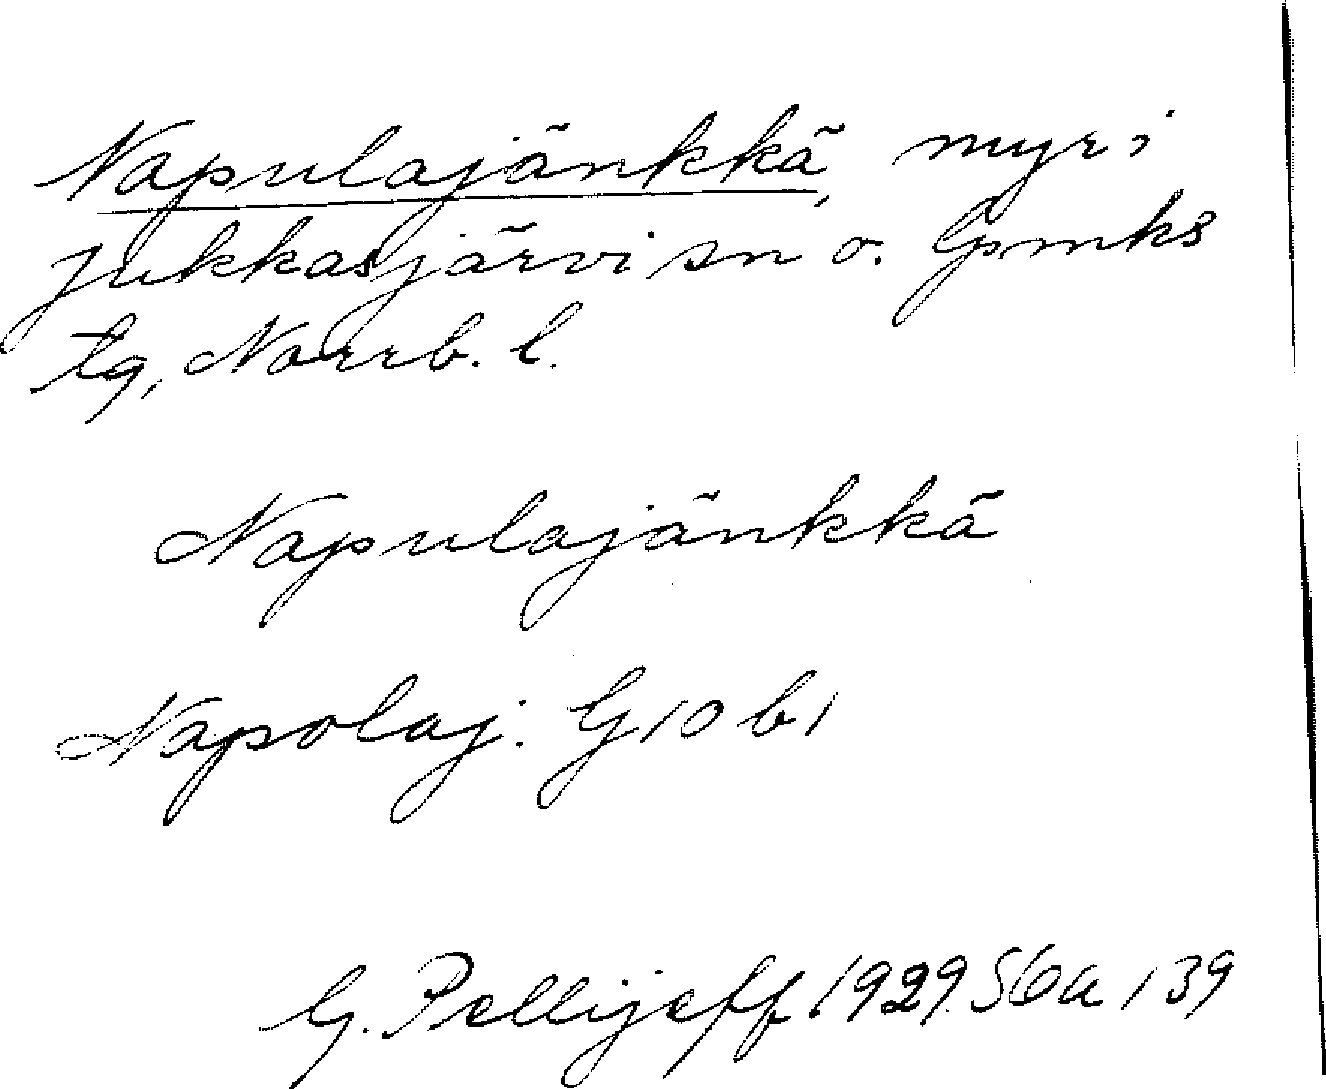 Napulajänkkä, myr i
Jukkasjärvi sn o. lpmks
tg, Norrb. l.
Napulajänkkä
Napolaj: G10 b1
G. Pellijeff 1929. S6a 139